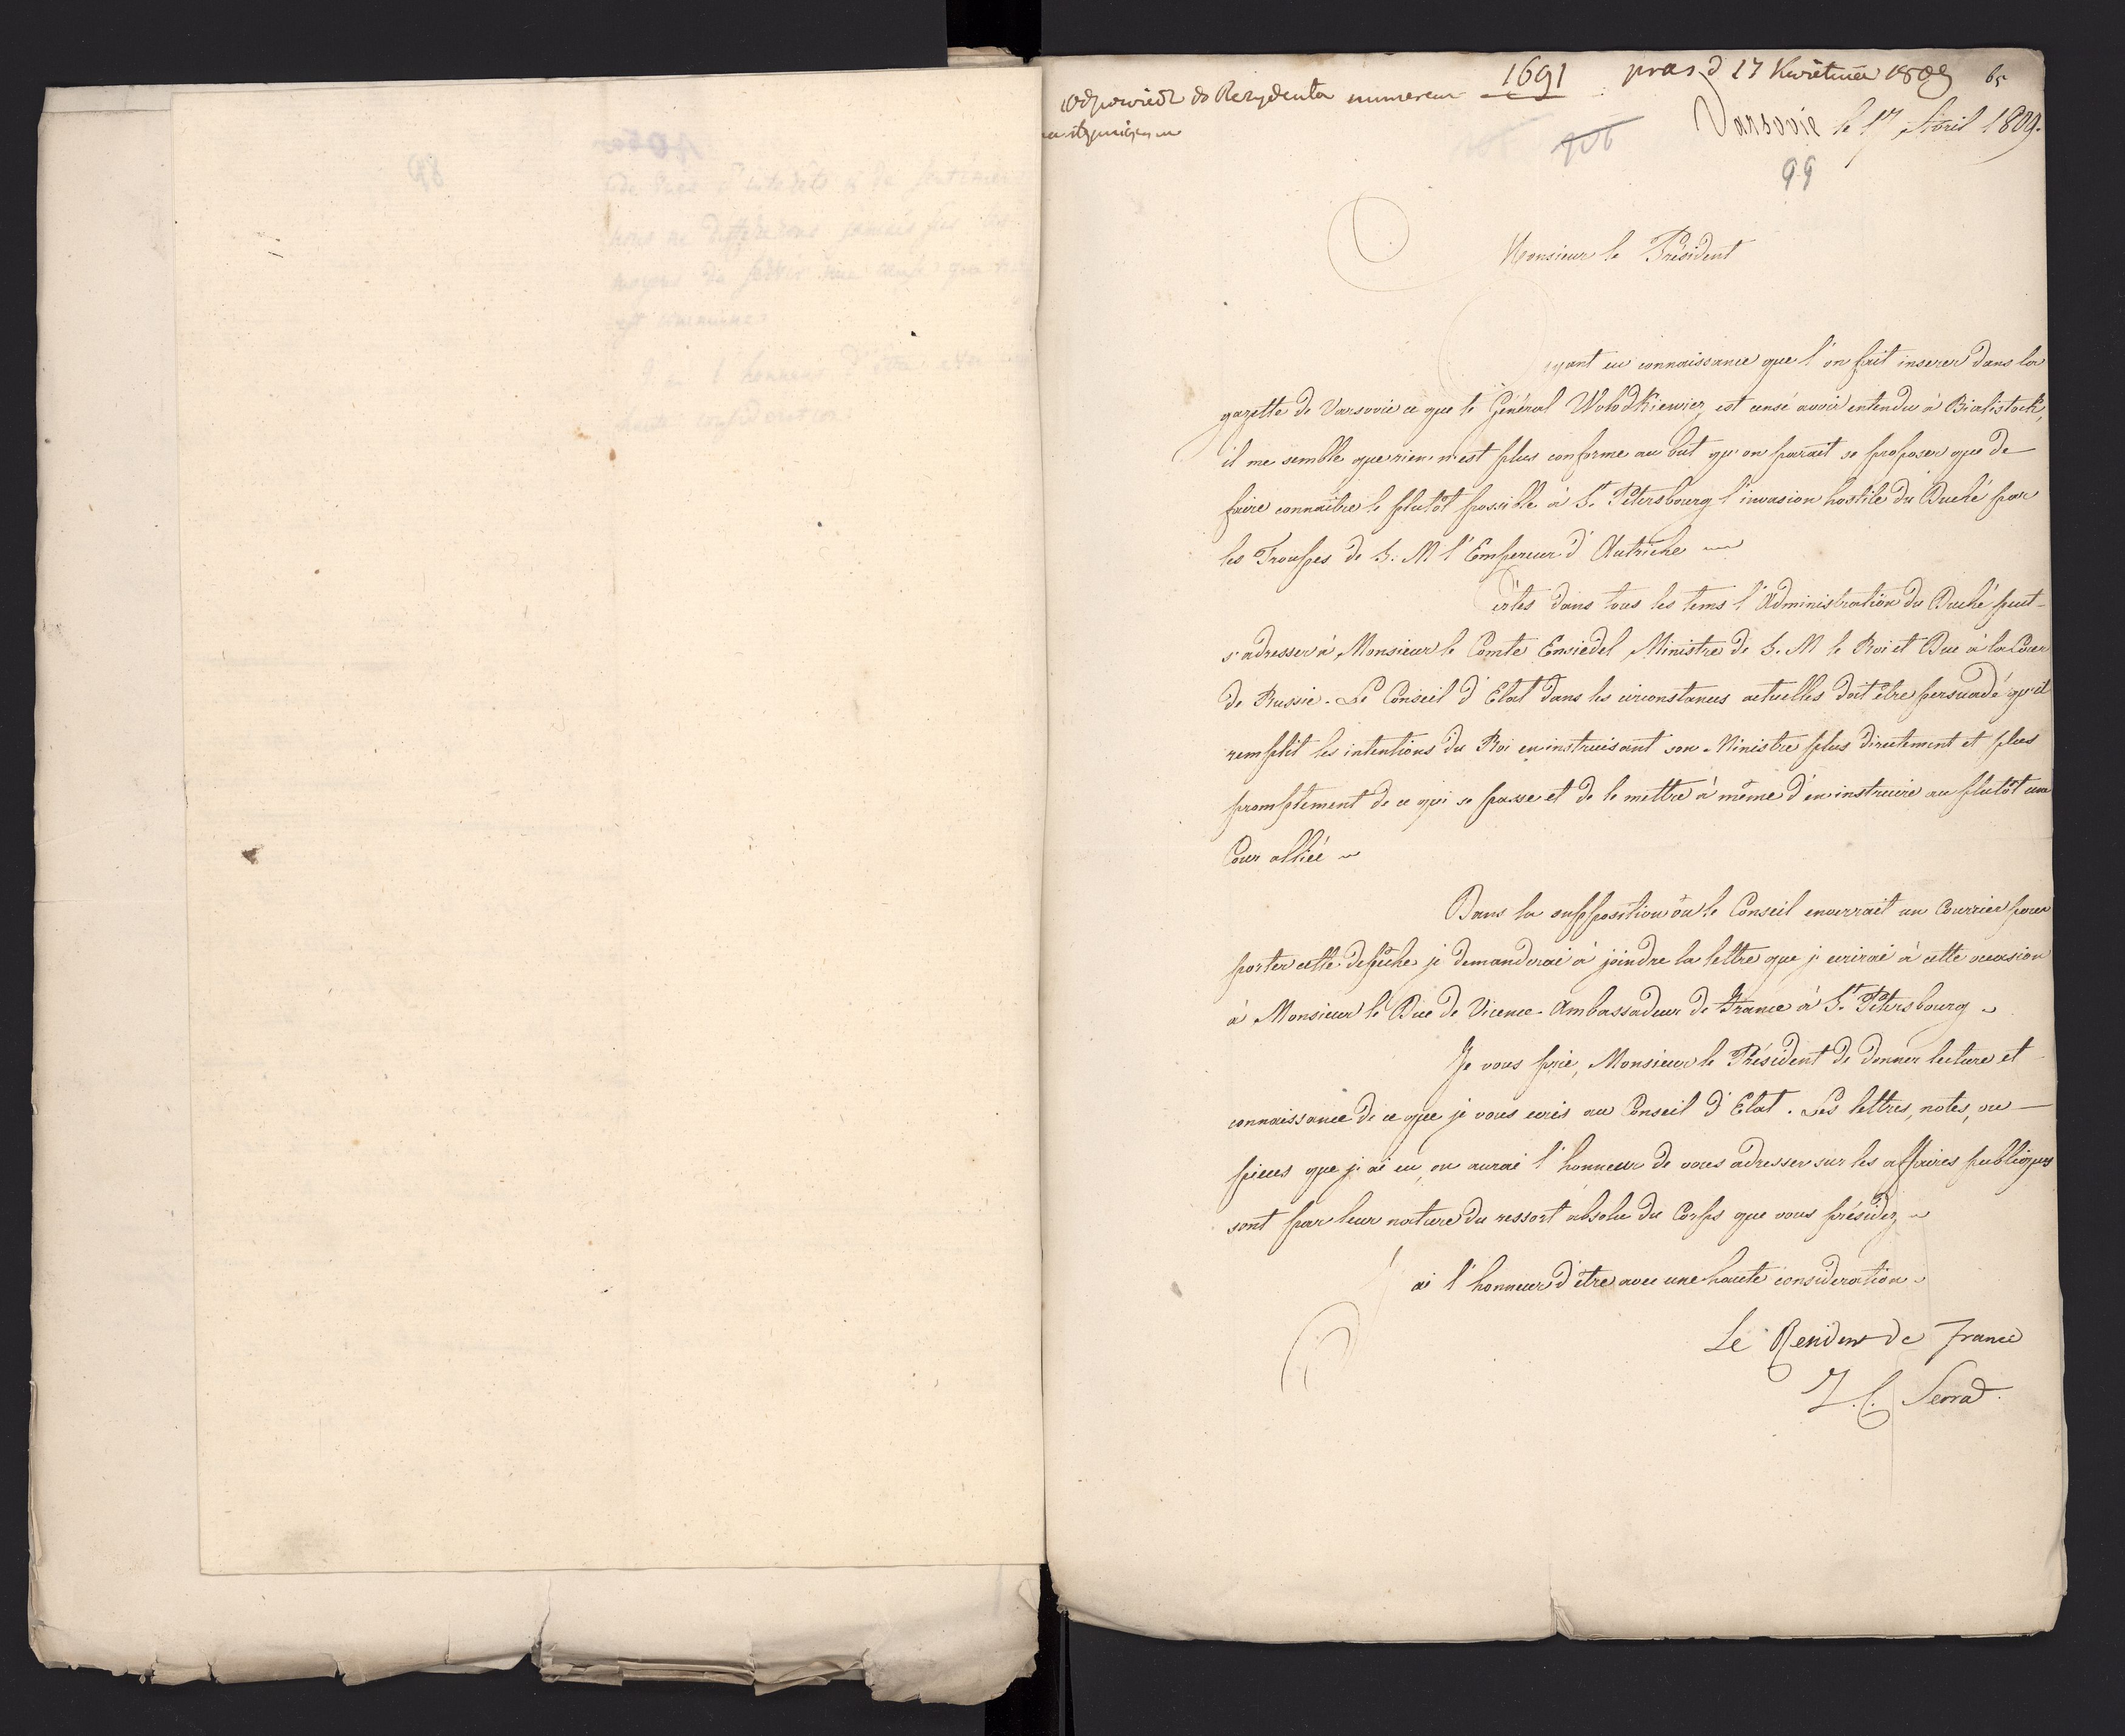 1691 pras d 17 Kwietnia 1809 65
Odpowiedz do Rezydenta numerem
Varsovie le 17 Avril 1809.
99
Monsieur le Président
yant eu connaissance que l'on fait inserer dans la
gazette de Varsovie ce que le Général Wolodkiewiez est censé avoir entendu à Bialistock,
il me semble que rien n'est plus conforme au but qu'on parait se proposer que de
faire connaitre le plutôt possible à St. Pétersbourg l'invasion hostile du Duché par
les Troupes de S. M l'Empereur d'Autriche
ertes dans tous les tems l'Administration du Duché peut
s'adresser à Monsieur le Comte Ensiedel Ministre de S. M le Roi et Duc à la Cour
de Russie. Le Conseil d'Etat dans les circonstances actuelles doit être persuadé qu'il
remplit les intentions du Roi en instruisant son Ministre plus directement et plus
promptement de ce qui se passe et de le mettre à même d'en instruire au plutôt une
Cour alliée
Dans la supposition où le Conseil enverrait un Courrier pour
porter cette depêche je demanderai à joindre la lettre que j'ecrirai à cette occasion
à Monsieur le Duc de Vicence Ambassadeur de France à St. Pétersbourg
Je vous prie, Monsieur le Président de donner lecture et
connaissance de ce que je vous ecris au Conseil d'Etat. Les lettres, notes, ou
pieces que j'ai eu, ou aurai l'honneur de vous adresser sur les affaires publiques
sont par leur nature du ressort absolu du Corps que vous présidez
ai l'honneur d'être avec une haute consideration
Le Resident de France
J. C. Serra